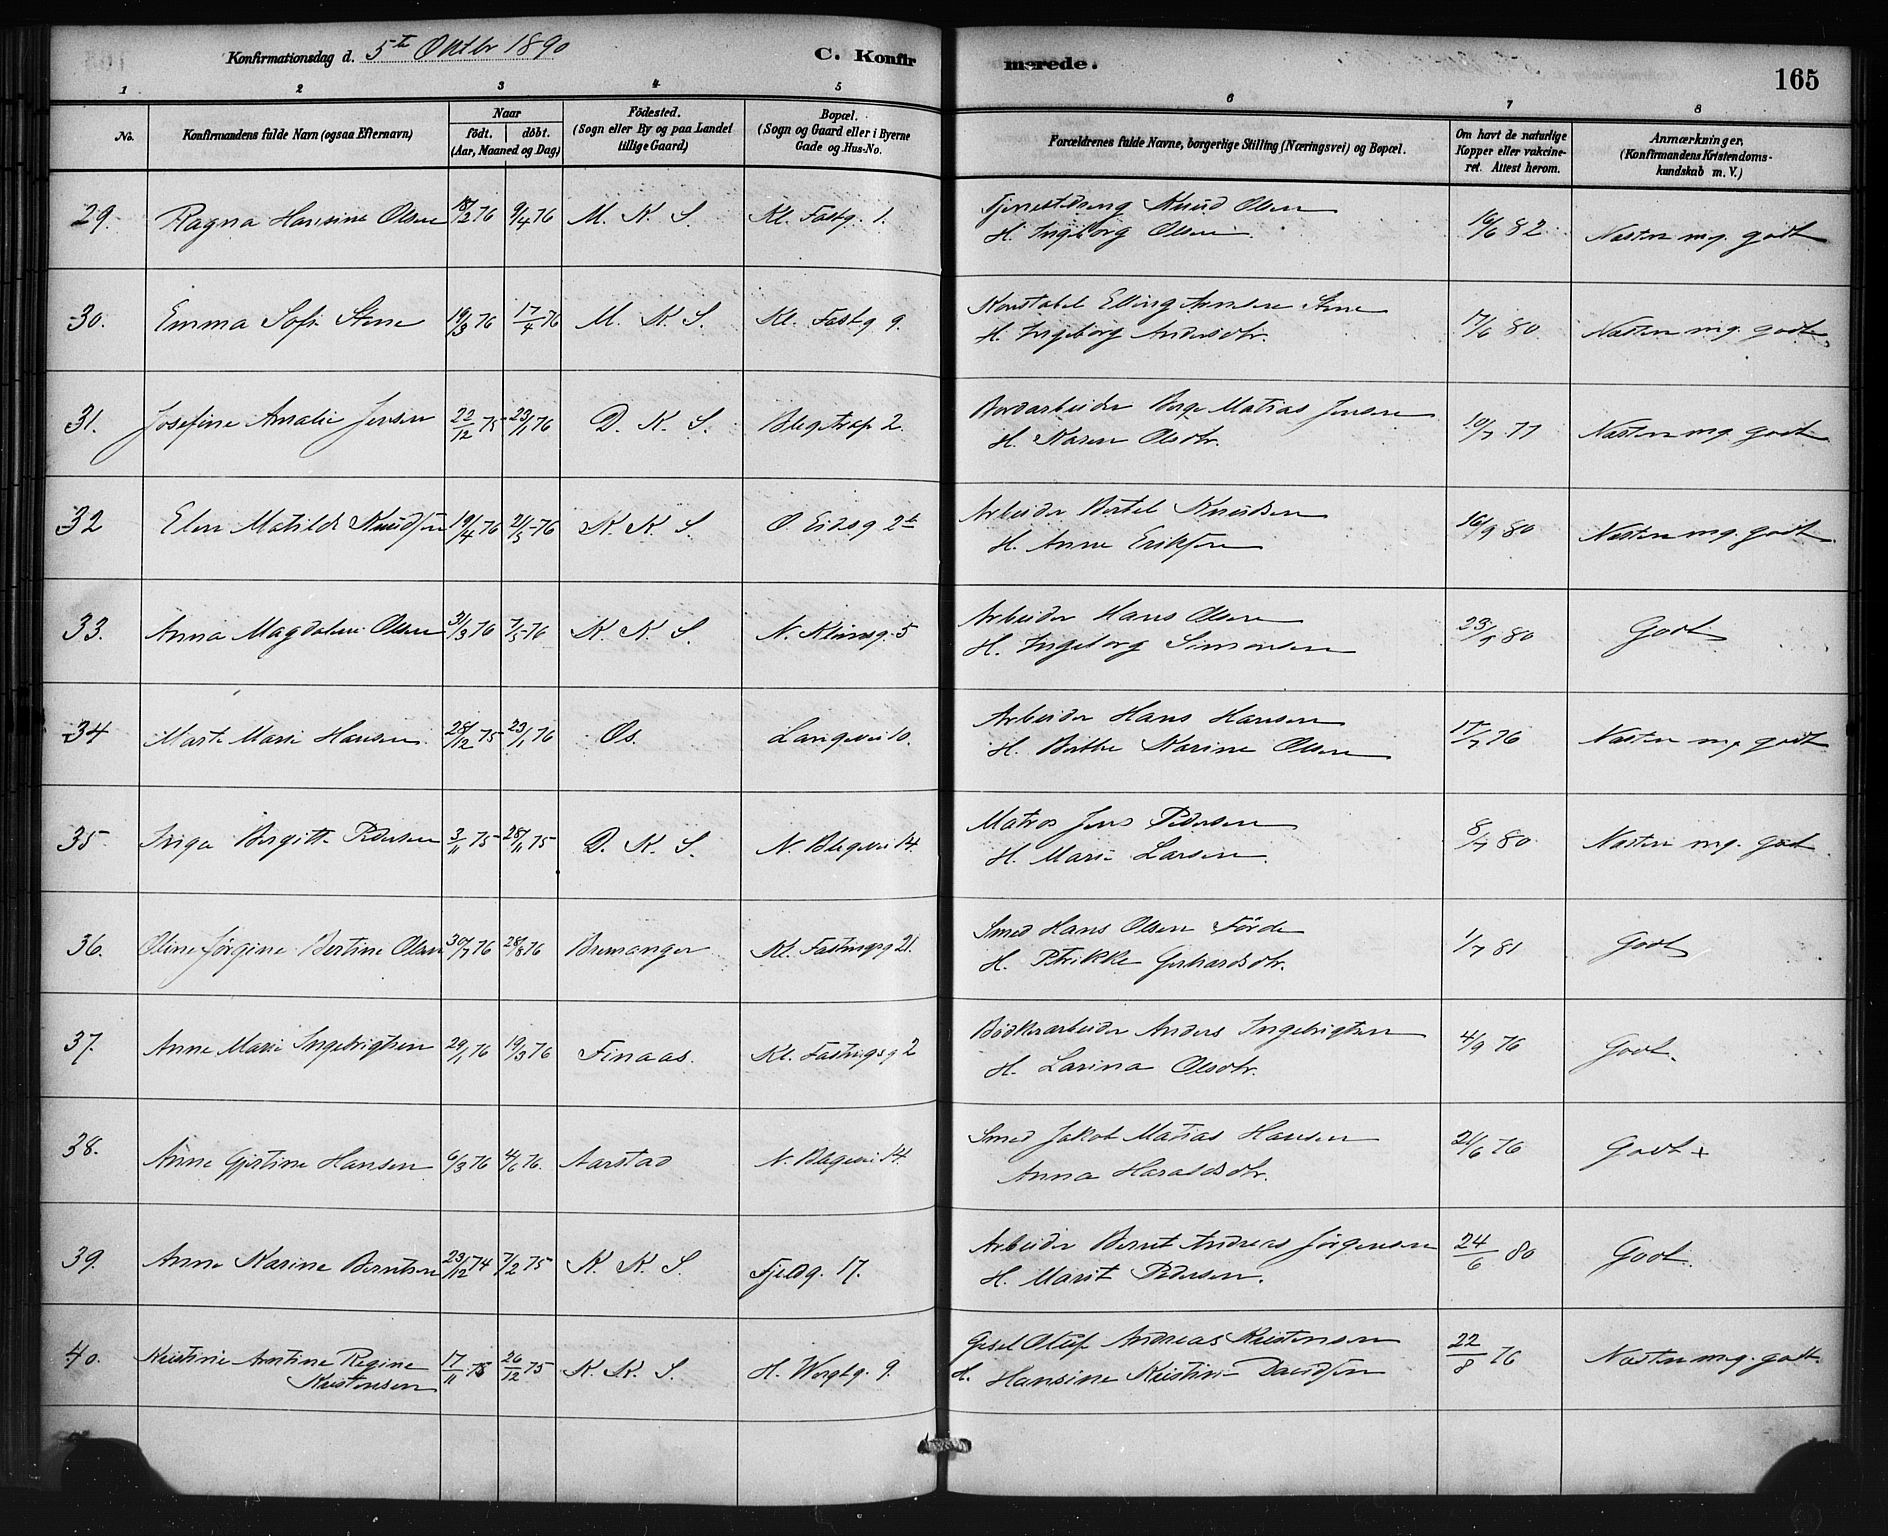 Konfirmationsdag d. 5te Oktbr 1890
C. Konfirmerede.
165
1 2 3 4 5 6 7 8
No.
Konfirmandens fulde Navn (ogsaa Efternavn)
Naar
födt. döbt.
(Aar, Maaned og Dag)
Födested.
(Sogn eller By og paa Landet
tillige Gaard)
Bopæl.
(Sogn og Gaard eller i Byerne
Gade og Hus-No.
Forældrenes fulde Navne, borgerlige Stilling (Næringsvei) og Bopæl.
Om havt de naturlige
Kopper eller vakcine-
ret. Attest herom.
Anmærkninger,
(Konfirmandens Kristendoms-
kundskab m. V.)
29. Ragna Hansine Olsen 18/2 76 9/4 76 M. K. S. Kl. Fastg. 1. Tjenestdreng Knud Olsen 16/6 82 Næsten mg. godt
H. Ingeborg Olsen
30. Emma Sofie Stene 19/3 76 17/4 76 M. K. S. Kl. Fastg. 9. Konstabel Elling Stene 17/6 80 Næsten mg. godt
H. Ingeborg Andersdtr.
31. Josefine Amalie Jensen 22/12 75 23/1 76 D. K. S. 2. Bordarbeider Matias Jensen 10/7 77 Næsten mg. godt
H. Karen Olsdtr.
32 Elen Matilde Knudsen 19/4 76 21/5 76 K. K. S. Ø Eidsg 2b Arbeider Bertel Knudsen 16/9 80 Næsten mg. godt
H. Anne Eriksen
33. Anna Magdalene Olsen 31/3 76 7/5 76 K. K. S. N. Klinisg. 5 Arbeider Hans Olsen 23/7 80 Godt
H. Ingeborg Simonsen
34 Marte Marie Hansen 28/12 75 23/1 76 Os. Langevei 10. Arbeider Hans Hansen 17/7 76 Næsten mg godt
H. Berthe Karine Olsen
35 Inga Bergitte Pedersen 3/11 75 28/11 75 D. K. S. N. Blegevei 14. Matros Jens Pedersen 8/7 80 Næsten mg. godt
H. Marie Larsen
36. Oline Jørgine Bertine Olsen 30/7 76 28/8 76 Bremanger Kl. Fastingsg 21. Smed Hans Olsen Förde 1/7 81 Godt
H. Petrikke Gerhardsdtr.
37. Anne Marie Ingebrigtsen 29/1 76 19/3 76 Finaas. Kl. Fastingsg 2 Bødkerarbeider Anders Ingebrigtsen 4/9 76 Godt.
H. Larina Olsdtr.
38. Anne Gjertine Hansen 6/3 76 4/6 76. Aarstad N. Blegevei 14. Smed Jakob Matias Hansen 21/6 76 Godt +
Anna Haraldsdtr.
39. Anne Karine Berntsen 23/12 74 7/2 75 K. K. S. Fjeldg. 17. Arbeider Bernt Andreas Jørgensen 24/6 80 Godt.
H. Marit Pedersen.
40. Kristine Regine 17/11 75 26/12 75 K. K. S. H. 9. Oluf Andreas Kristensen 22/8 76 Næsten mg. godt.
Kristensen H. Hansine Kristine Davidsen